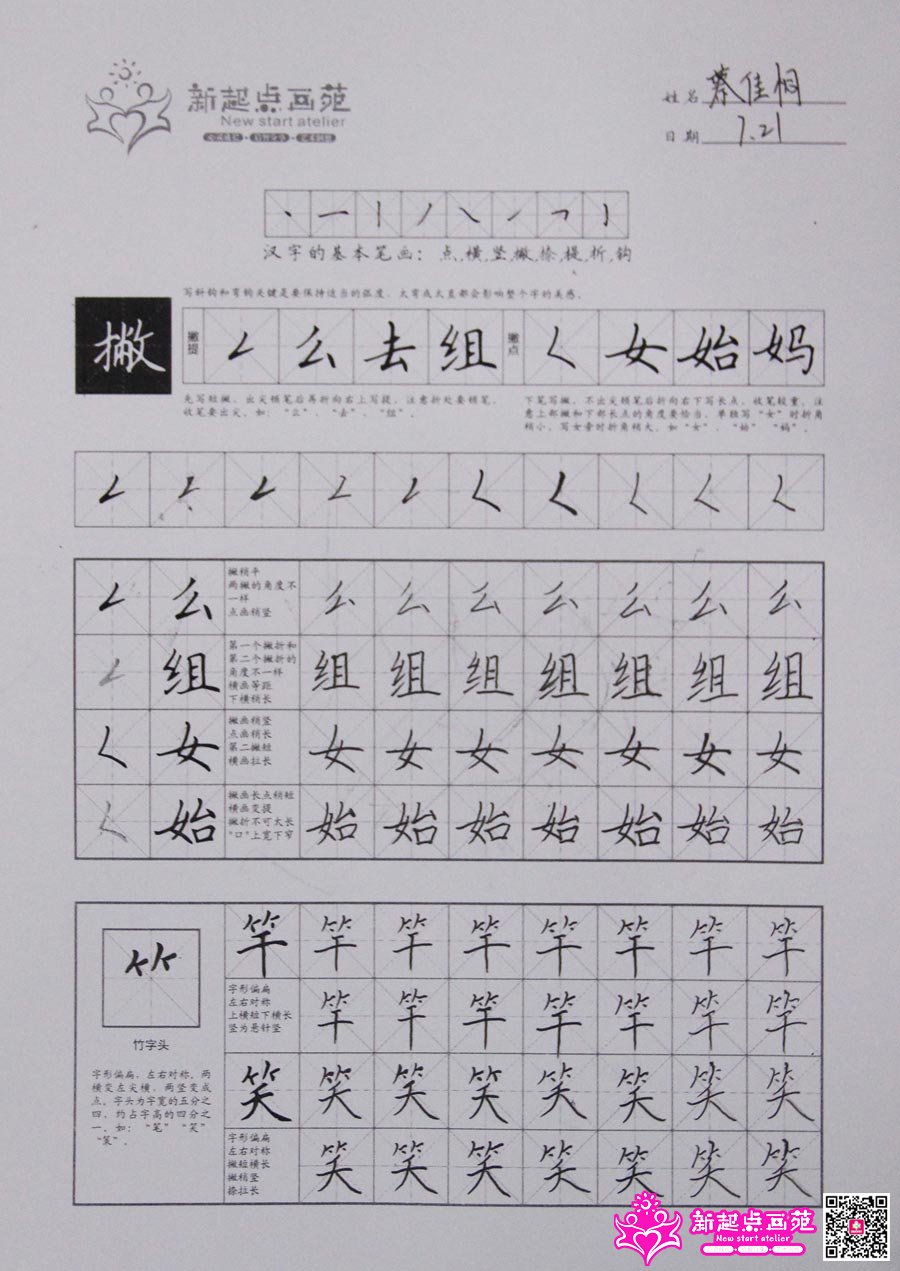 新起点画苑
New start atelier
姓名 蔡佳桐
日期 7.21
汉字的基本笔画：点,横,竖,撇,捺,提,折,钩
写斜钩和弯钩关键是要保持适当的弧度，太弯或太直都会影响整个字的美感。
撇
撇提 𠃋 么 去 组 撇点 𡿨 女 始 妈
先写短撇，出尖顿笔后再折向右上写提，注意折处要顿笔，
收笔要出尖。如：“么”、“去”、“组”。
下笔写撇，不出尖顿笔后折向右下写长点，收笔较重，注
意上部撇和下部长点的角度要恰当，单独写“女”时折角
稍小，写女旁时折角稍大。如“女”、“始”“妈”。
𠃋 𠃋 𠃋 𠃋 𠃋 𡿨 𡿨 𡿨 𡿨 𡿨
𠃋 么
撇稍平
两撇的角度不
一样
点画稍竖
么 么 么 么 么 么 么
𠃋 组
第一个撇折和
第二个撇折的
角度不一样
横画等距
下横稍长
组 组 组 组 组 组 组
𡿨 女
撇画稍竖
点画稍长
第二撇短
横画拉长
女 女 女 女 女 女 女
𡿨 始
撇画长点稍短
横画变提
撇折不可太长
“口”上宽下窄
始 始 始 始 始 始 始
竹字头
字形偏扁，左右对称。两
横变左尖横，两竖变成
点。字头为字宽的五分之
四，约占字高的四分之
一。如：“笔”“笑”
“笨”。
竿 竿 竿 竿 竿 竿 竿 竿
字形偏扁
左右对称
上横短下横长
竖为悬针竖
竿 竿 竿 竿 竿 竿 竿
笑 笑 笑 笑 笑 笑 笑 笑
字形偏扁
左右对称
撇短横长
撇稍竖
捺拉长
笑 笑 笑 笑 笑 笑 笑
新起点画苑
New start atelier